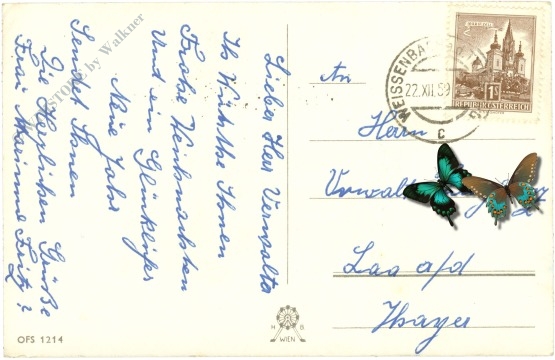 Lieber Herr Verwalter
Ich Wünsche Ihnen
Frohe Weihnachten
Und ein Glückliches
Neue Jahr
Sendet Ihnen
Die Herzlichen Grüße
Frau Marianne Fritz
An
Herrn
Verwalter
Laa a/d
Thaya
1S
REPUBLIK ÖSTERREICH
WEISSENBA
22.XII.59
c
by Walkner
OFS 1214
H B
WIEN